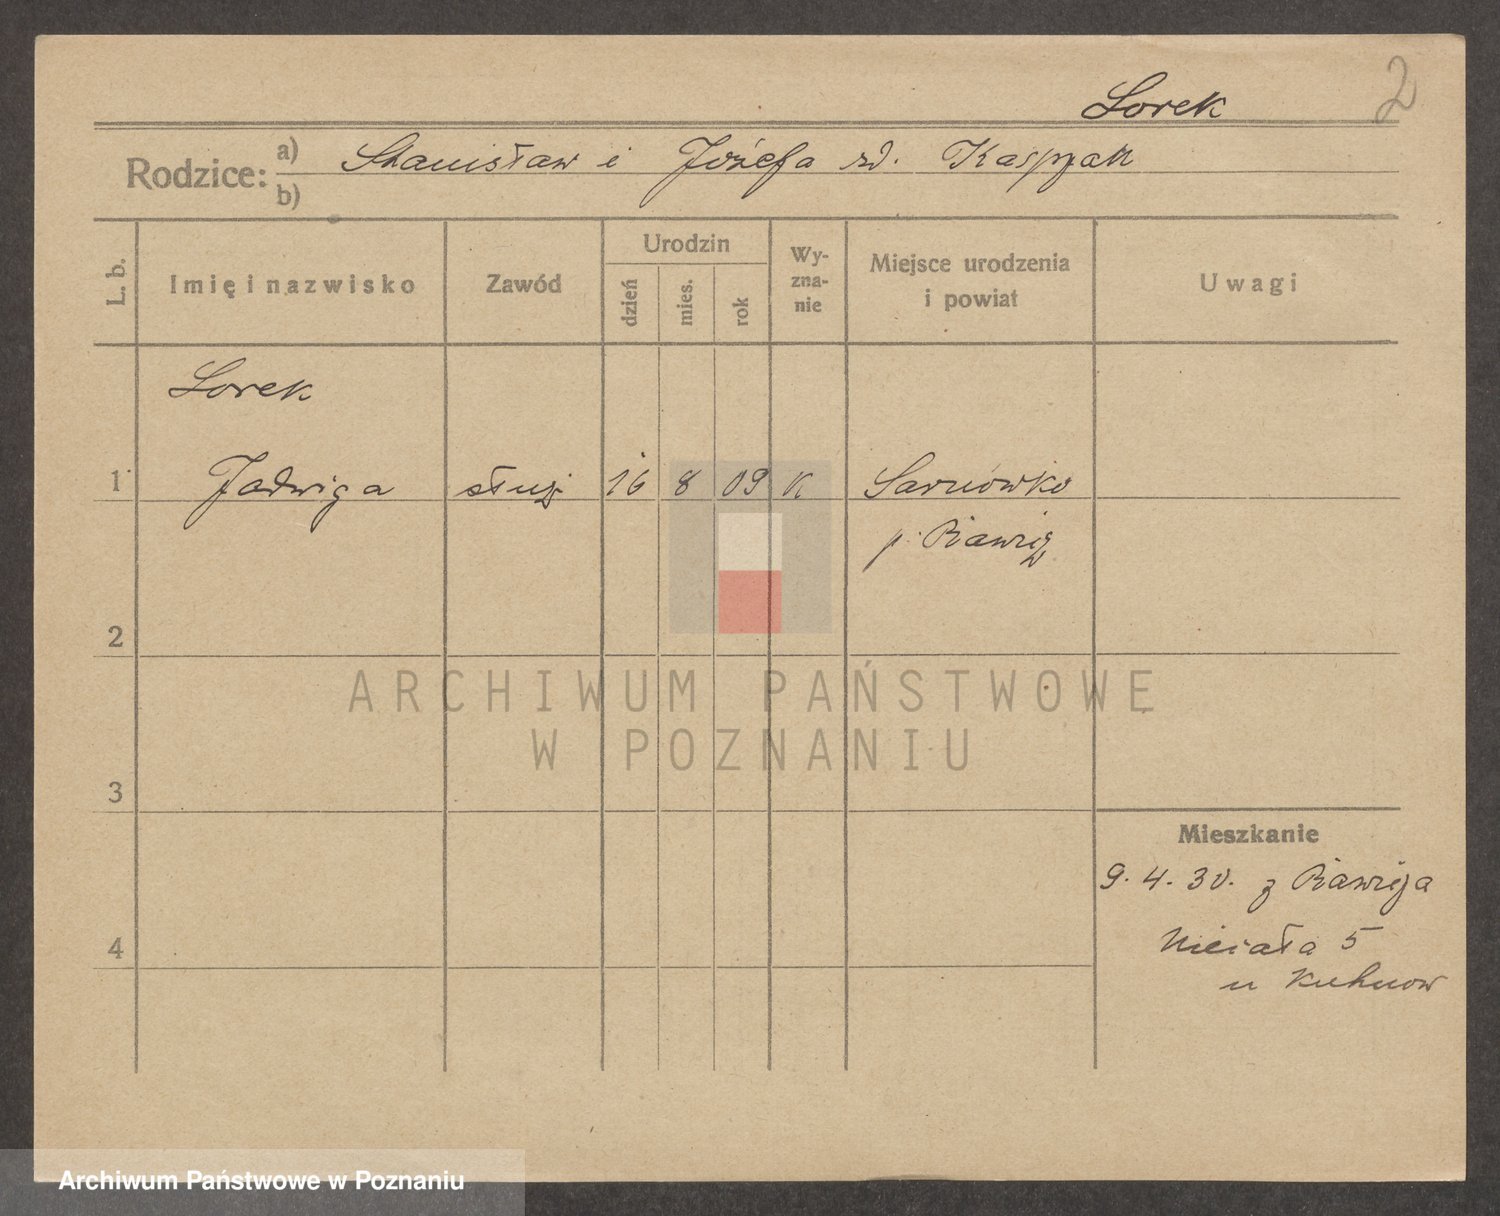 2
Lorek
Rodzice: a) Stanisław i Józefa zd. Kaspzak
b)
L. b. Imię i nazwisko Zawód Urodzin dzień mies. rok Wy-zna-nie Miejsce urodzenia i powiat Uwagi
Lorek
1 Jadwiga służ 16 8 09 K Sarnówko
p. Rawicz
2
ARCHIWUM PAŃSTWOWE
W POZNANIU
3
Mieszkanie
9. 4. 30. z Rawicza
4
5
u
Archiwum Państwowe w Poznaniu